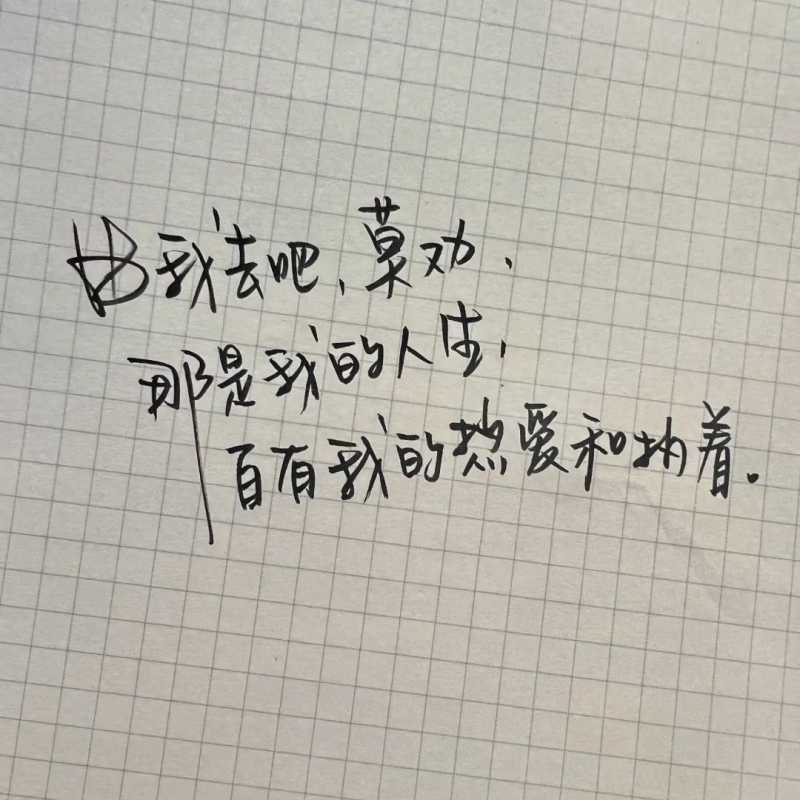 由我去吧，莫劝，
那是我的人生，
自有我的热爱和执着。